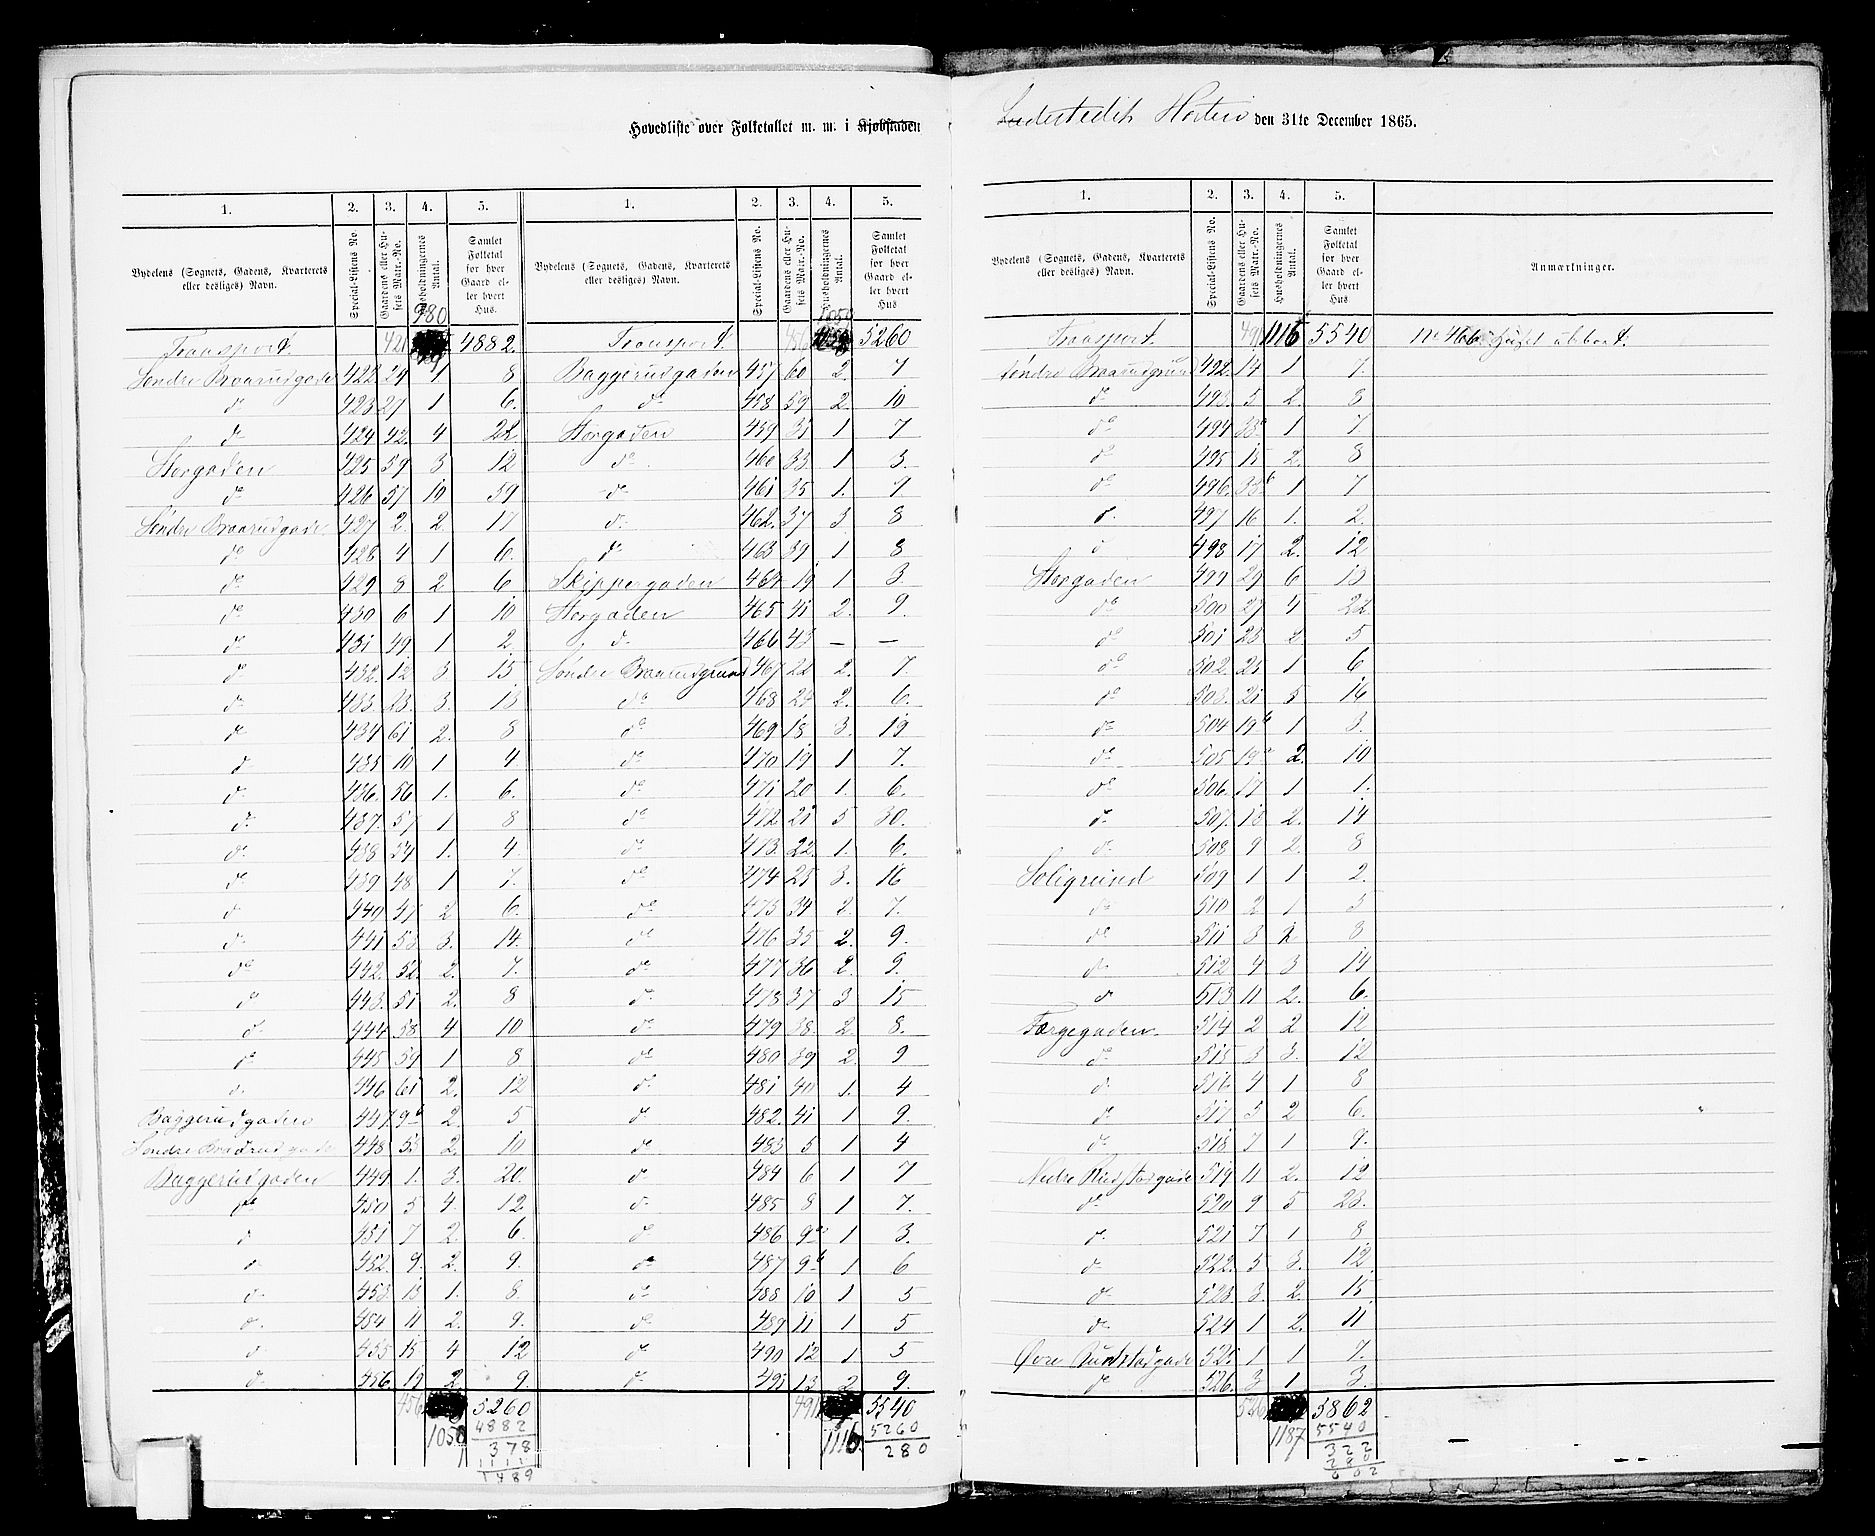 Hovedliste over Folketallet m. m. i Kjøbstaden
Ladestedet Horten den 31te December 1865.
1. 2. 3. 4. 5. 1. 2. 3. 4. 5.
Bydelens (Sognets, Gadens, Kvarterets eller desliges) Navn. Special-Listens No. Gaardens eller Husets Matr.-No. Husholdningernes Antal. Samlet Folketal for hver Gaard eller hvert Hus.
Bydelens (Sognets, Gadens, Kvarterets eller desliges) Navn. Special-Listens No. Gaardens eller Husets Matr.-No. Husholdningernes Antal. Samlet Folketal for hver Gaard eller hvert Hus
980
Transport. 421 4882.
Søndre Braarudgade 422 24 1 8
do 423 27 1 6.
do 424 42. 4 22
Storgaden 425 59 3 12
do 426 57 10 39
Søndre Braarudgade 427 2. 2. 17
do 428 4 1 6.
do 429 8 2 6
do 430 6 1 10
do 431 49 1 2
do 432. 12 3 15
do 433. 23. 3. 13
do 434 61 2. 8
do 435 10 1 4
do 436. 56 1. 6.
do 437. 57 1 8
do 438 54 1. 4.
do 439 48 1 7.
do 440 47 2 6.
do 441 53 3. 14.
do 442. 52. 2. 7.
do 443. 51 2. 8
do 444 58 4 10
do 445 59 1 8
do 446 61 2. 12
Baggerudgaden 447 9b 2. 5
Søndre Braarudgade 448 53 2. 10
Baggerudgaden 449 1. 3. 20.
do 450 5 4. 12
do 451 7 2. 6.
do 452. 9. 2. 9.
do 453. 13 1. 8.
do 454 11 2. 9.
do 455 15 4 12
do 456. 19 2. 9.
456 5260
1050 4882
378
1111
1489
1050
Transport. 456 5260
Baggerudgaden 457 60 2. 7
do 458 59 2. 10
Storgaden 459 31 1 7
do 460 33 1 3.
do 461 35 1. 9.
do 462. 37 3 8
do 463 39 1 8
Skippergaden 464 19 1 3
Storgaden 465 41 2. 9.
do 466 43 — —
Søndre Braarudgrund 467 22 2. 7.
do 468 23 2. 6.
do 469 18 3. 19
do 470 19 1 7.
do 471 20 1. 6.
do 472 21 5 30.
do 473. 22. 1. 6.
do 474 25 3. 16
do 475 34 2. 7.
do 476 35 2. 9.
do 477 36 2. 9.
do 478 37 3 15
do 479 38. 2. 8.
do 480 39 2. 9
do 481 40 1. 4
do 482. 41 1 9.
do 483 5 1 4
do 484 6 1 7
do 485 8 1 7.
do 486 9a 1 3.
do 487 9b 1 6
do 488 10 1 5
do 489 11 1 5
do 490 12 1 5
do 491 13 2 9.
491 5540
1116. 5260
280
1. 2. 3. 4. 5.
Bydelens (Sognets, Gadens, Kvarterets eller desliges) Navn. Special-Listens No. Gaardens eller Husets Matr.-No. Husholdningernes Antal. Samlet Folketal for hver Gaard eller hvert Hus Anmærkninger.
Transport. 491 1116 5540 No 466 Huset afbrændt.
Søndre Braarudgrund 492. 14 1 7.
do 493. 5 2. 8
do 494 33a 1 7.
do 495 15 2. 8
do 496. 33b 1 7
do 497 16 1. 2.
do 498 17 2. 12
Storgaden 499 29 6 13
do 500 27 4 22.
do 501 23 2 5
do 502. 25 1 6
do 503. 21 5 16
do 504 19b 1 3.
do 505 19a 2. 10
do 506. 17 1 1.
do 507. 13 2. 14
do 508 9 2. 8
Soligrund 509 1 1 2.
do 510 2 1 5
do 511 3 2 8
do 512 4 3 14
do 513 11 2. 6.
Færgegaden 514 2 2 12
do 515 3 3. 12
do 516. 4 1 8
do 517 5 2 6.
do 518 7 1 9.
Nedre Rudstadgade 519 11 2. 12
do 520 9 5 23.
do 521 7 1 8
do 522. 5 3. 12
do 523 3. 2. 15
do 524 1 2. 11
Øvre Rudstadgade 525 1 1 7.
do 526. 3 1 3.
526 5862
1187 5540
322
280
602